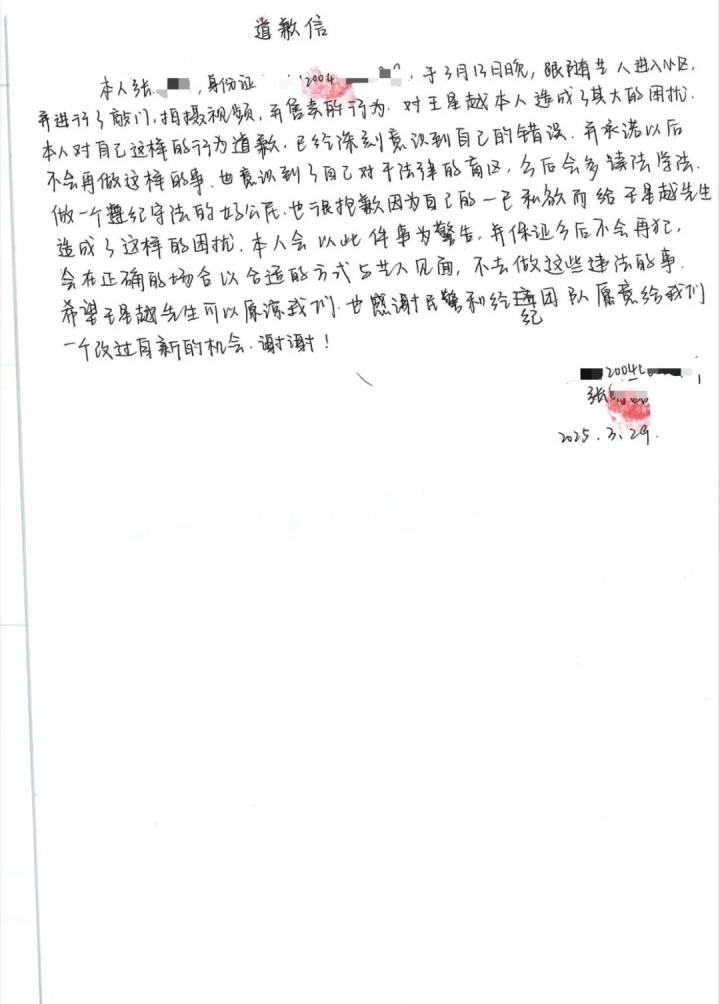 道歉信
本人张，身份证 2004，于3月13日晚，跟随艺人进入小区，
并进行了敲门，拍摄视频，并售卖的行为. 对王星越本人造成了莫大的困扰.
本人对自己这样的行为道歉. 已经深刻意识到自己的错误. 并承诺以后
不会再做这样的事. 也意识到了自己对于法律的盲区，今后会多读法学法.
做一个遵纪守法的好公民. 也很抱歉因为自己的一己私欲而给王星越先生
造成了这样的困扰. 本人会以此件事为警告，并保证今后不会再犯，
会在正确的场合以合适的方式与艺人见面，不去做这些违法的事.
希望王星越先生可以原谅我们. 也感谢民警和经纪团队愿意给我们
一个改过自新的机会. 谢谢！
2004
张
2025.3.29.